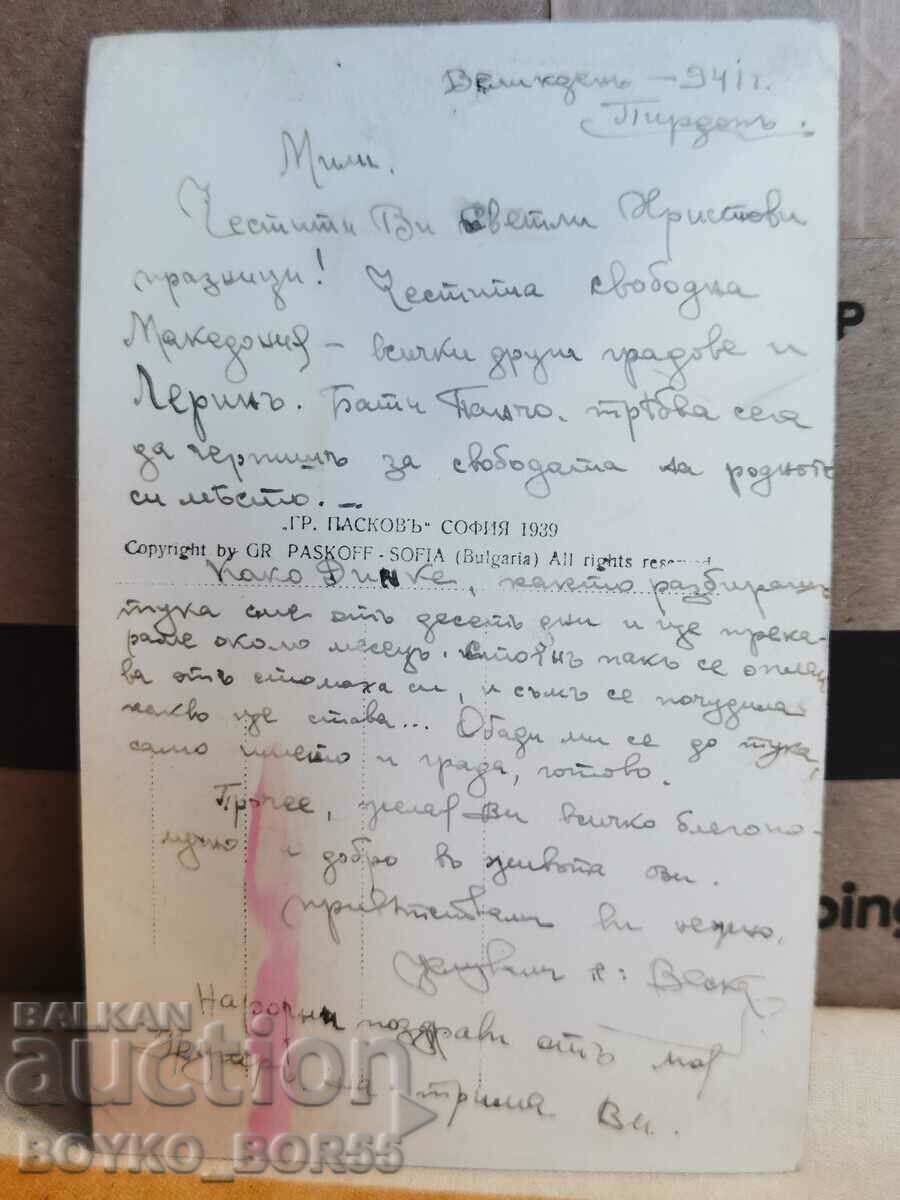 Великденъ - 941 г.
Пирдопъ.
Мили.
Честити Ви Светли Христови
празници! Честита свободна
Македония - всички други градове и
Леринъ. Бати Панчо, трѣбва сега
да черпишъ за свободата на родното
си мѣсто. -
„ГР. ПАСКОВЪ" СОФИЯ 1939
Copyright by GR PASKOFF - SOFIA (Bulgaria) All rights reserved
Како Динке, както разбирашъ
тука сме отъ десеть дни и ще прека-
раме около месецъ. Стоянъ пакъ се оплак
ва отъ стомаха си, и съмъ се почудила
какво ще става... Обади ми се до тука,
само името и града, готово.
Прочее, желая Ви всичко благопо-
лучно и добро въ живота Ви.
Привѣтствамъ Ви нежно.
Целувамъ Веска
Нарочни поздрави отъ моя
на трима Ви.
BALKAN
auction
BOYKO_BOR55
P
ping